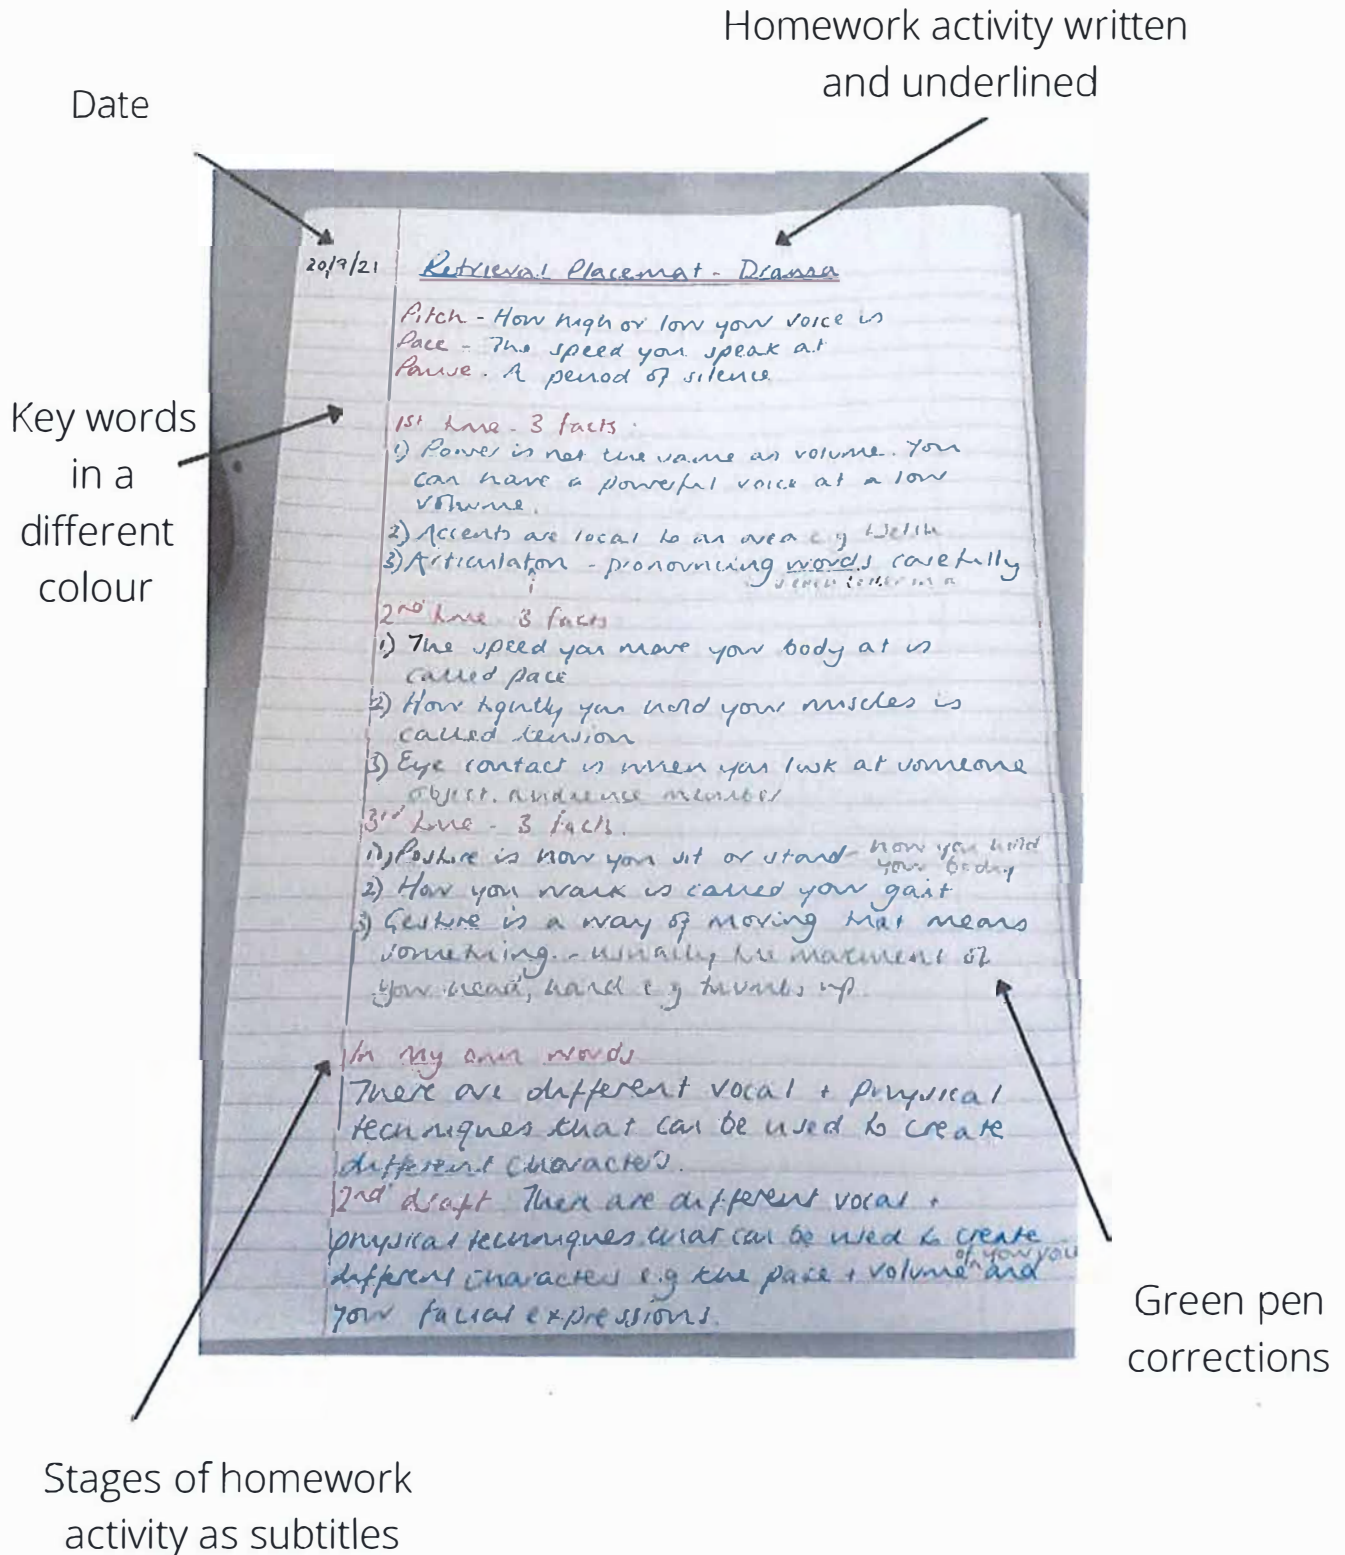 Homework activity written
and underlined
Date
20/9/21
Retrieval Placemat - Drama
Pitch - How high or low your voice is
Pace - The speed you speak at
Pause - A period of silence
Key words
in a
different
colour
1st time - 3 facts
1) Power is not the same as volume. You
can have a powerful voice at a low
volume.
2) Accents are local to an area e.g Welsh
3) Articulaton - pronouncing words carefully
i
each letter in a
2nd time 3 facts
1) The speed you move your body at is
called pace
2) How tightly you hold your muscles is
called tension
3) Eye contact is when you look at someone
object, audience member
3rd time - 3 facts.
1) Posture is how you sit or stand - how you hold
your body
2) How you walk is called your gait
3) Gesture is a way of moving that means
something - usually the movement of
your head, hand e.g thumbs up.
In my own words
There are different vocal + physical
techniques that can be used to create
different characters.
2nd draft There are different vocal +
physical techniques that can be used to create
of how you
different characters e.g the pace + volume and
your facial expressions.
Green pen
corrections
Stages of homework
activity as subtitles